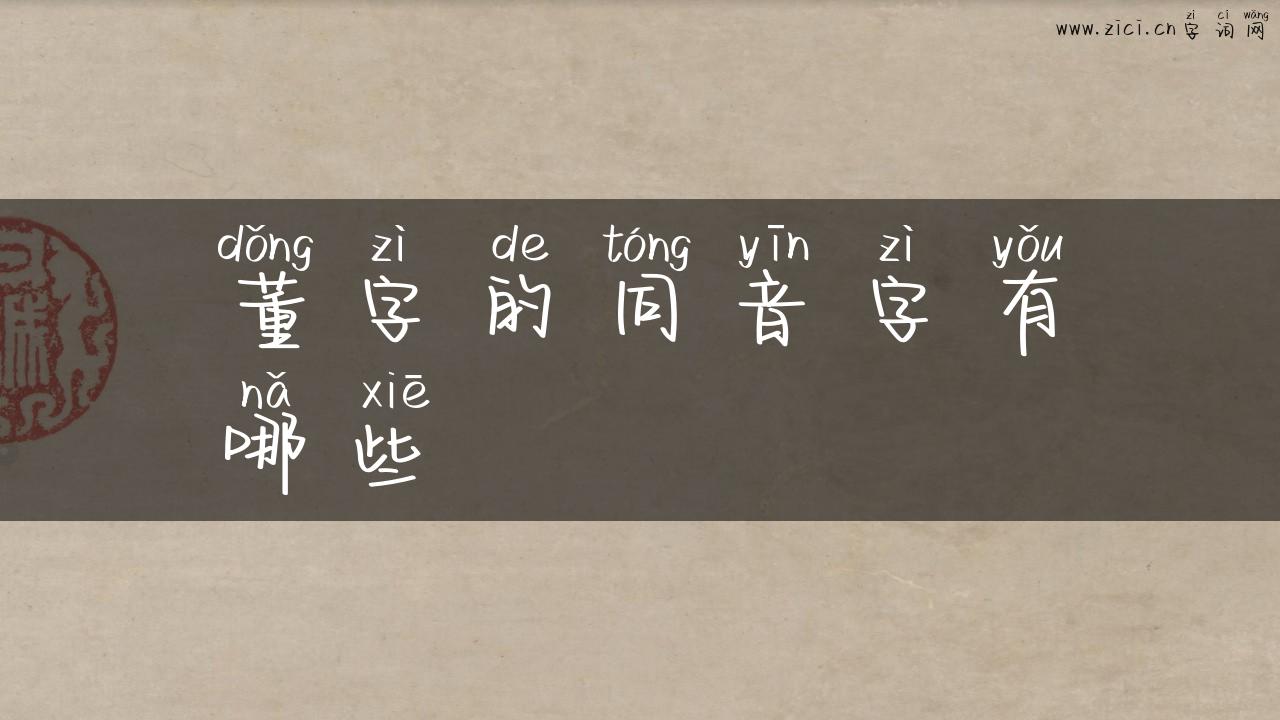 zì cí wǎng
www.zici.cn 字 词 网
dǒng zì de tóng yīn zì yǒu
董 字 的 同 音 字 有
nǎ xiē
哪 些